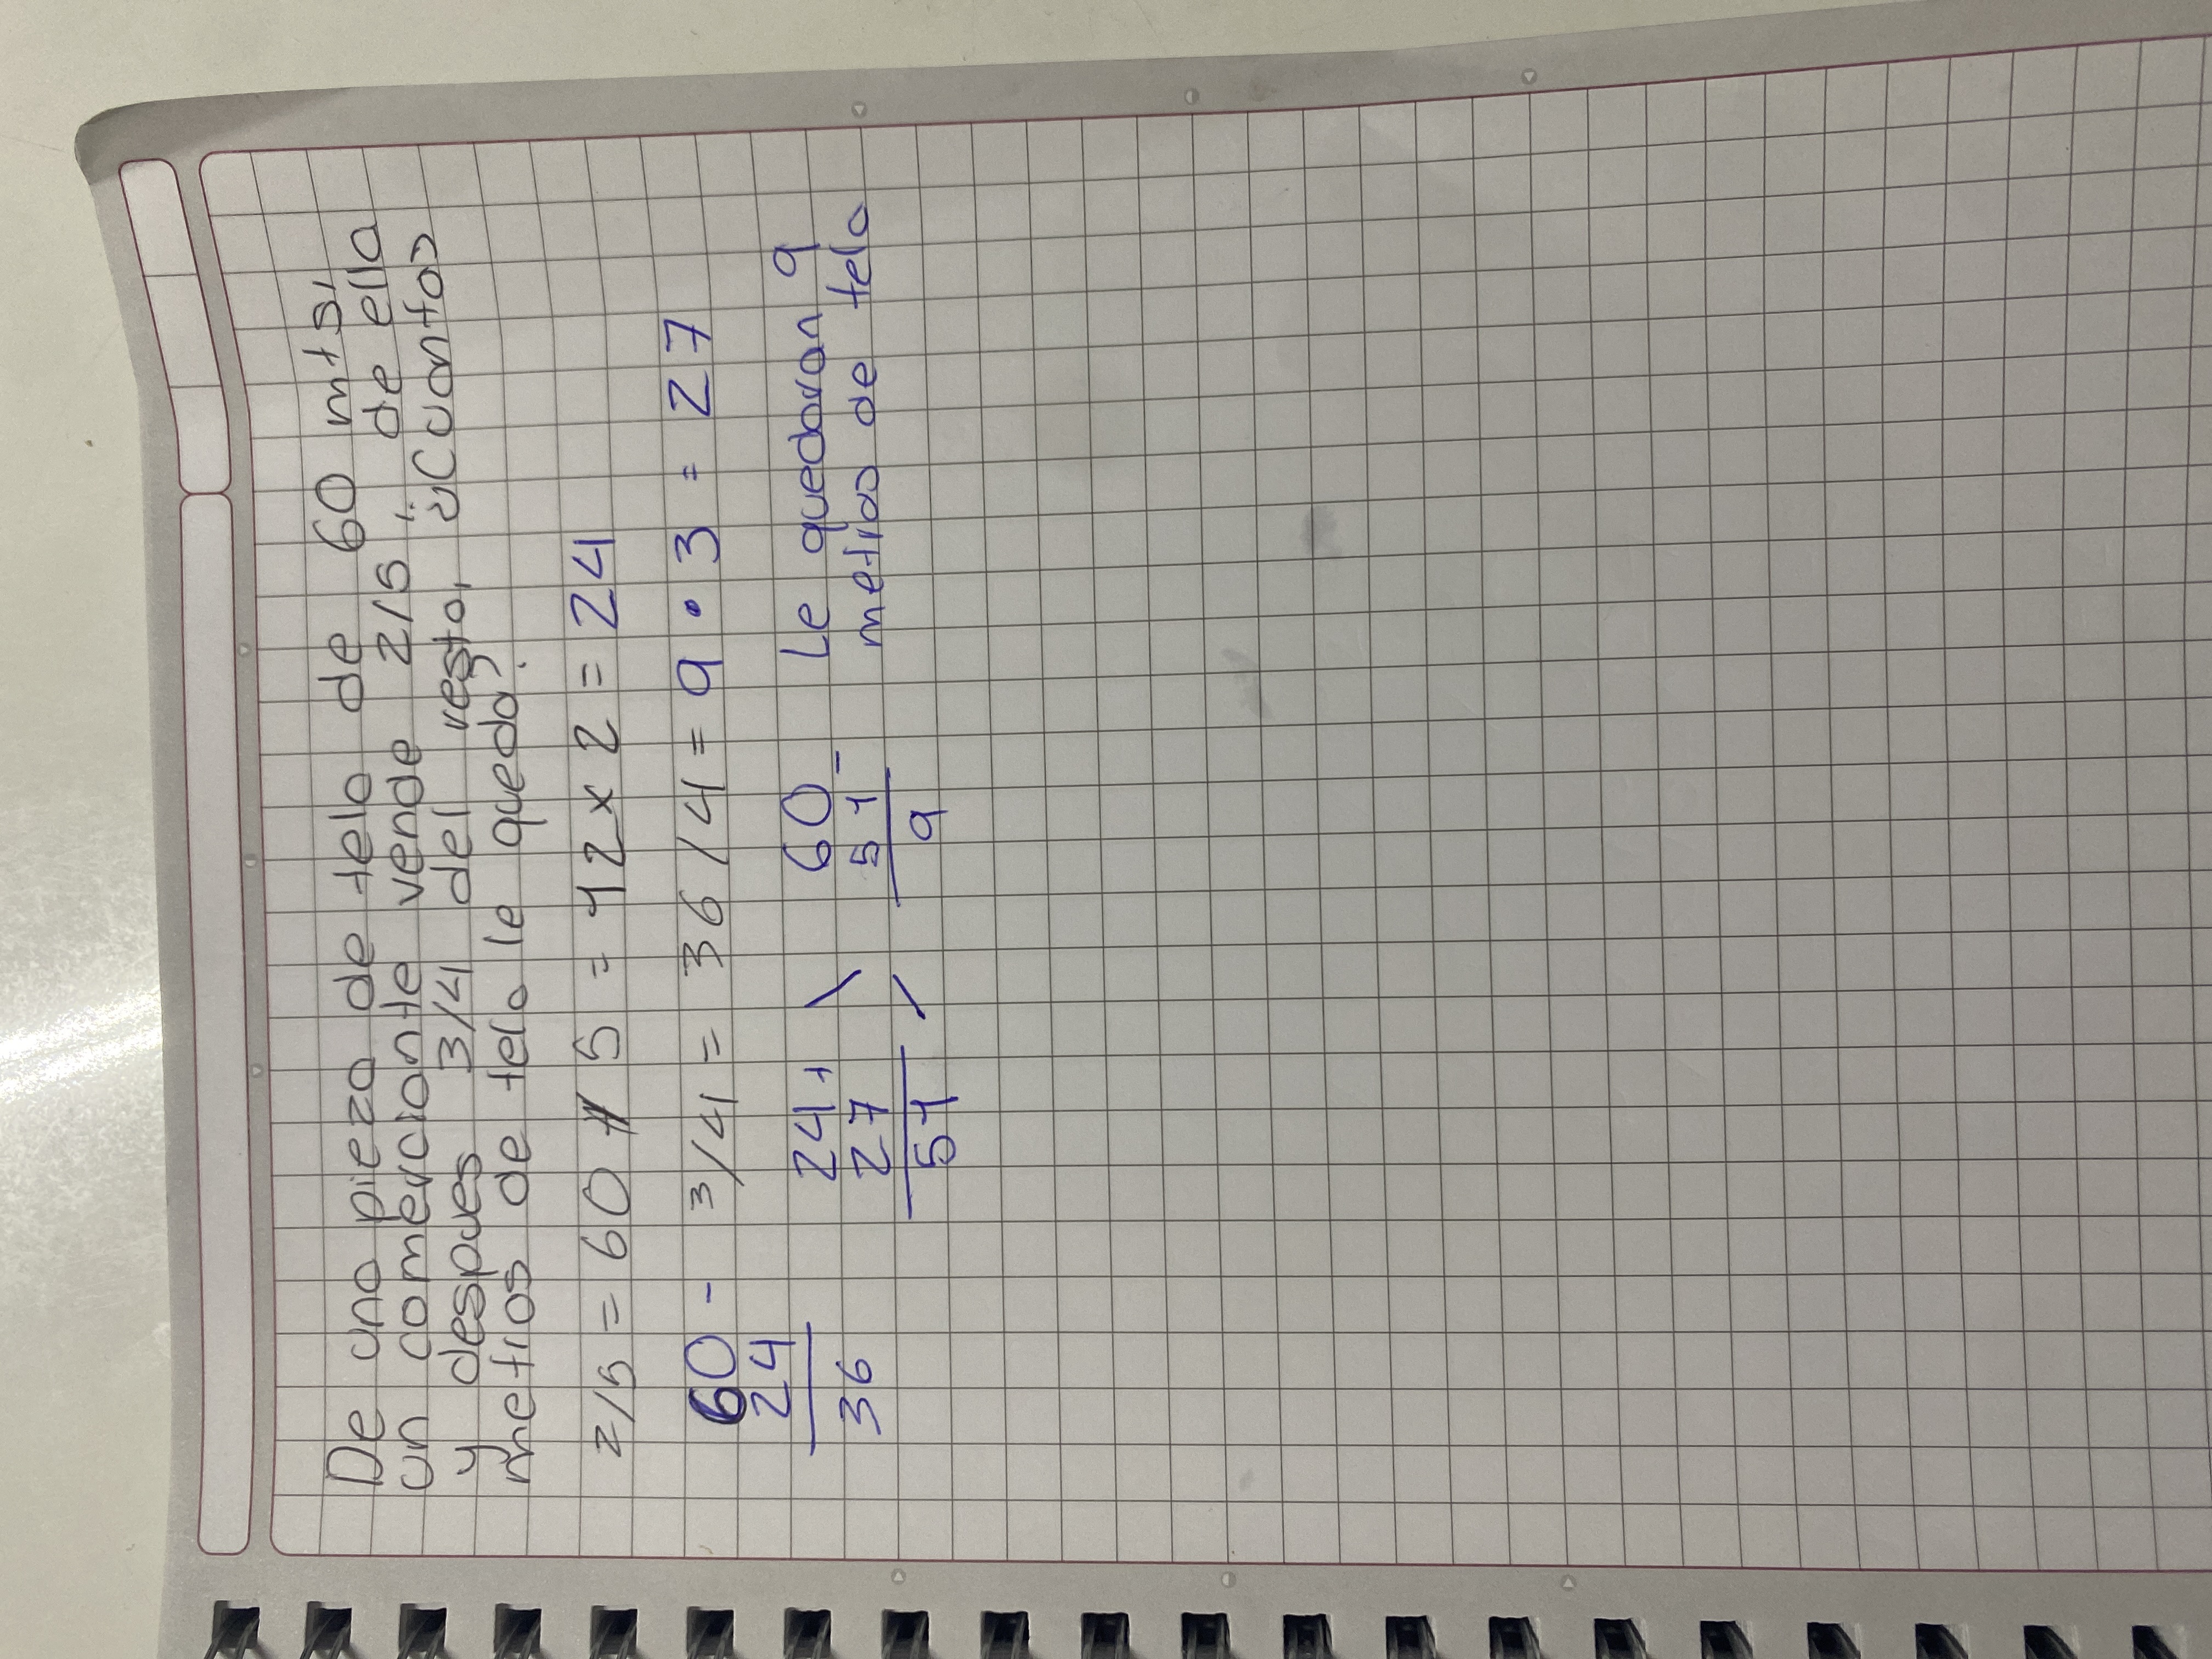 De una pieza de tela de 60 mts,
un comerciante vende 2/5 de ella
y despues 3/4 del resto, ¿Cuantos
metros de tela le quedo?
2/5 = 60 / 5 = 12 x 2 = 24
60 - 3/4 = 36 / 4 = 9 • 3 = 27
24
36
24 + > 60 - Le quedaran 9
27 51 metros de tela
51 9